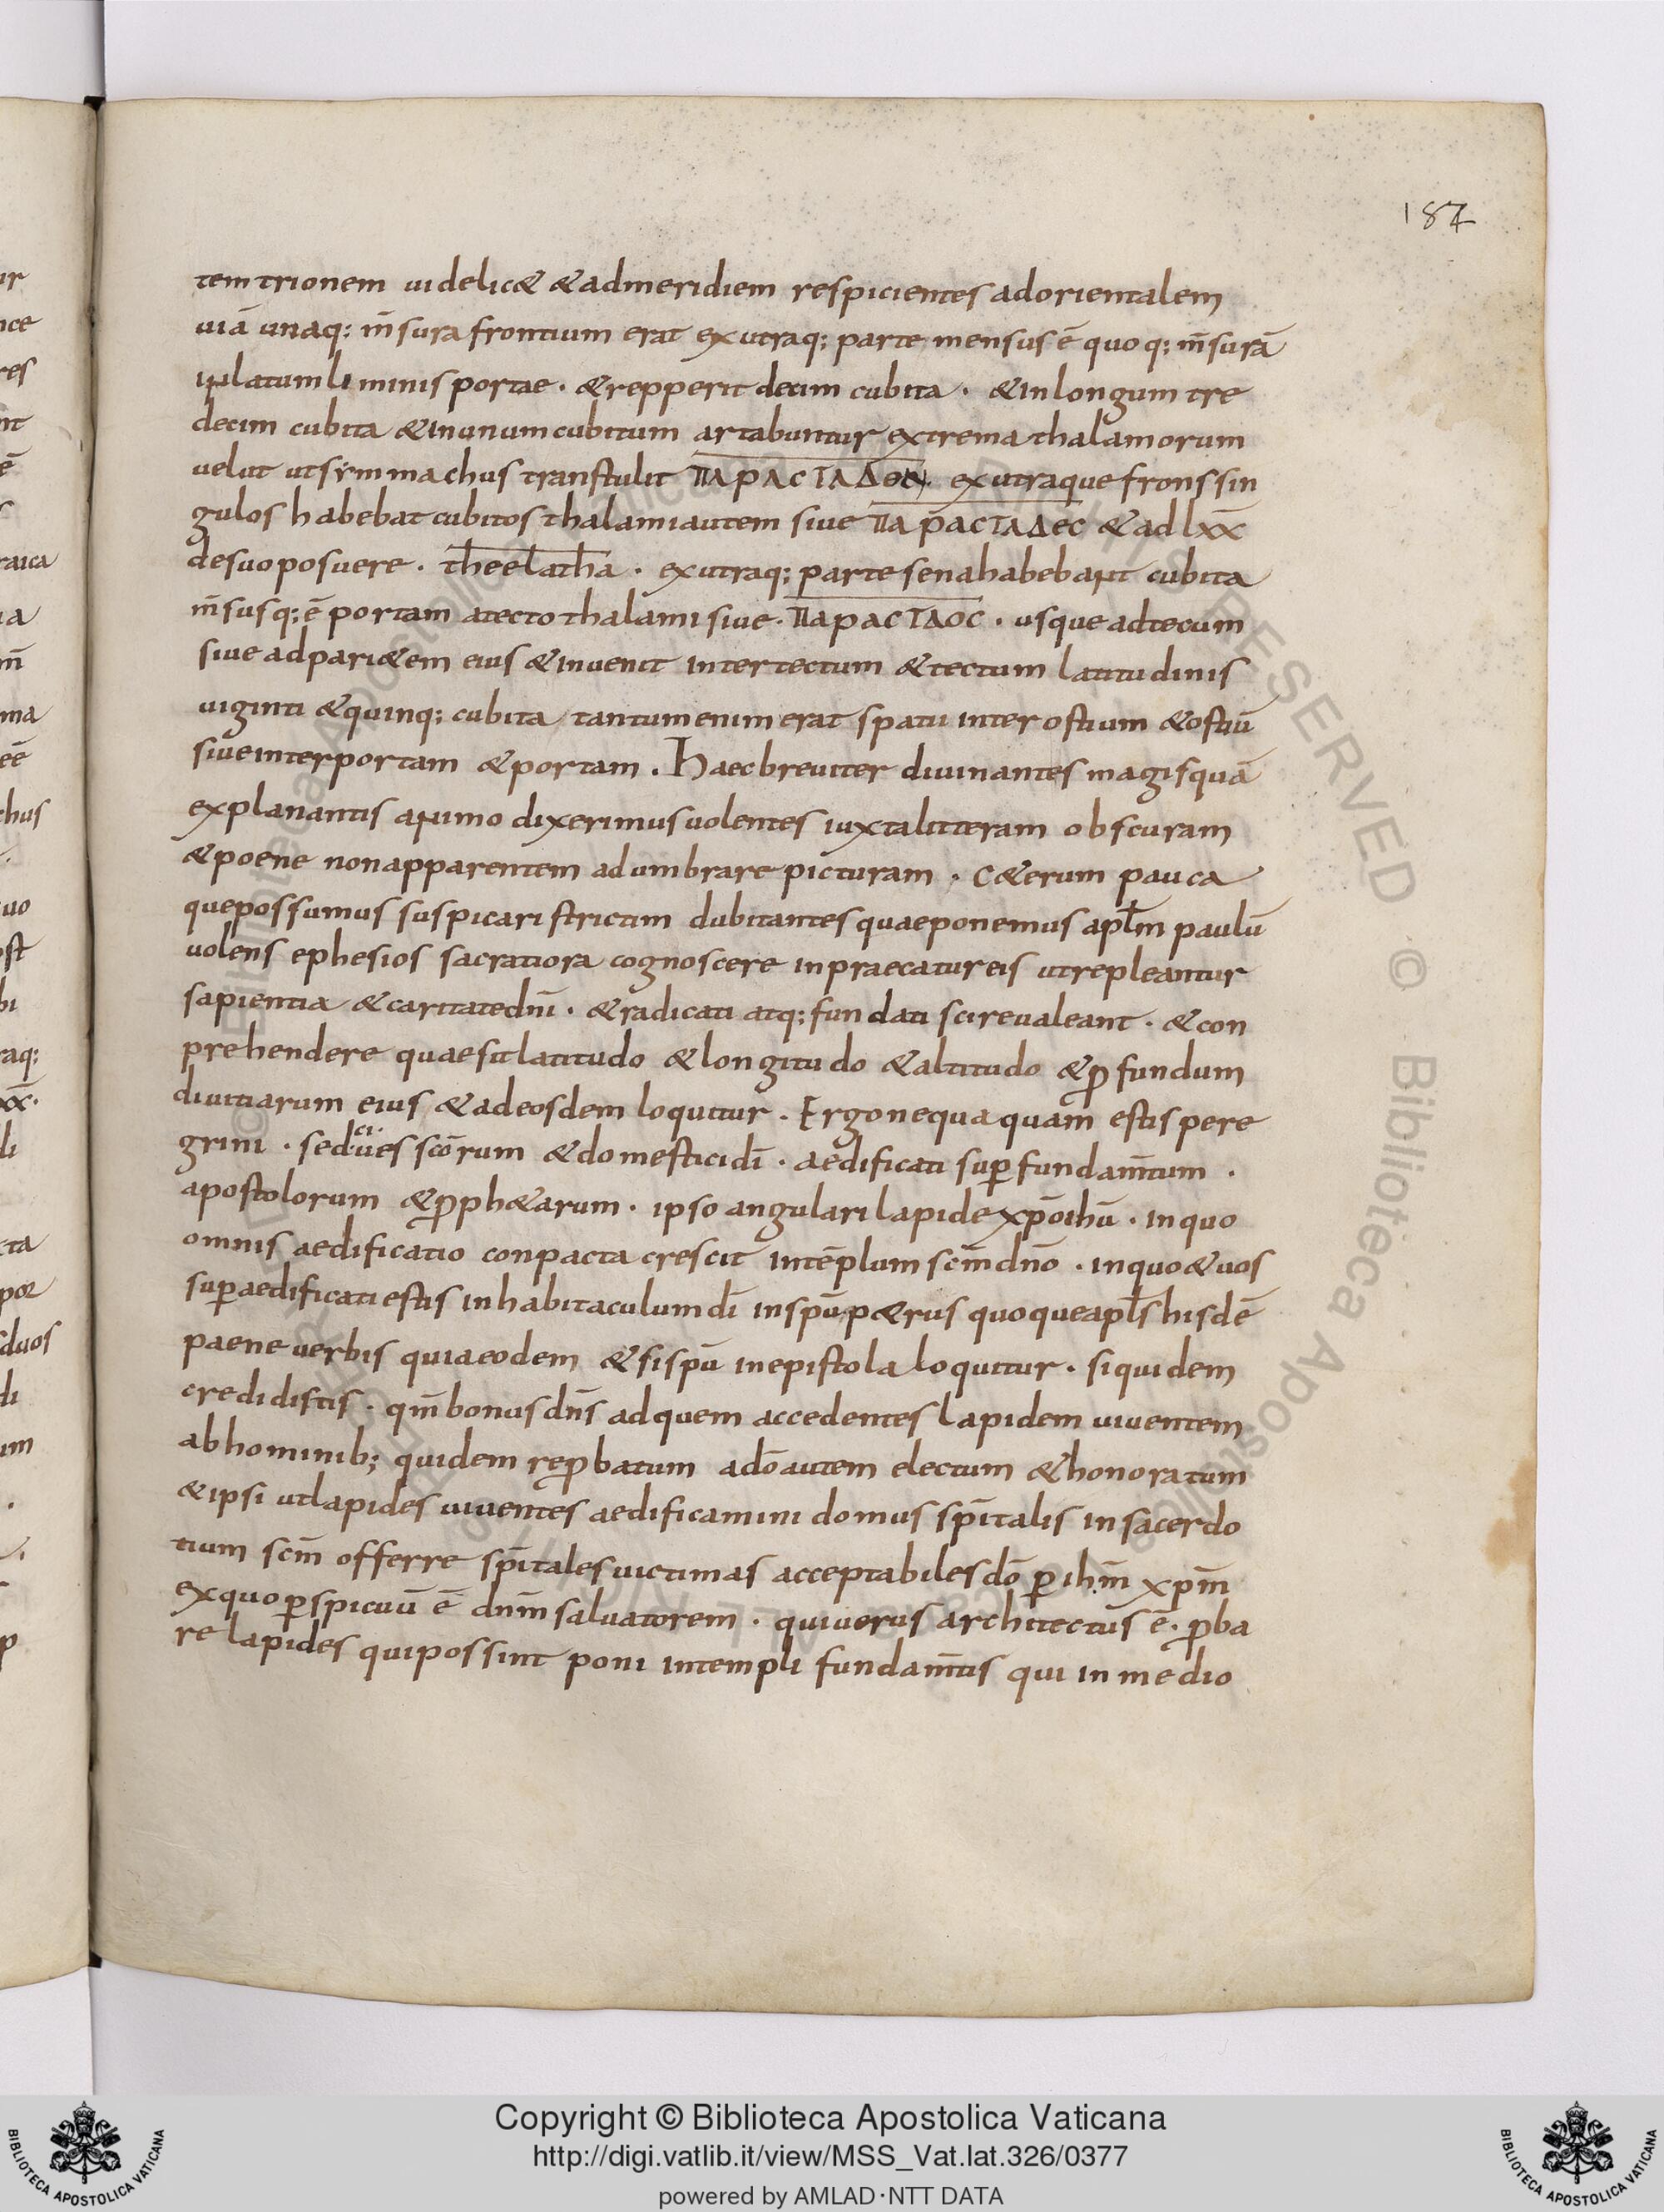 187
temtrionem uidelic& &admeridiem respicientes adorientalem
uiā unaq: m̄sura frontium erat exutraq; parte mensus ē quoq; m̄surā
inlatum liminis portae · &repperit decim cubita · &inlongum tre
decim cubita &inunumcubitum artabuntur extrema thalamorum
uelut utsymmachus transtulit παραcταδον exutraque frons sin
gulos habebat cubitos thalami autem siue παραcταδεc &ad lxx̄
desuoposuere · theelatha · exutraq; parte sena habebant cubita
m̄susq; ē portam atecto thalami siue · παραcταοc · usque adtecum
siue adpari&em eius &inuenit intertectum &tectum latitudinis
uiginti &quinq; cubita tantum enim erat spatii inter ostium &ostiū
siue interportam &portam . Haec breuiter diuinantes magis quā
explanantis animo dixerimus uolentes iuxtalitteram obscuram
&poene nonapparentem adumbrare picturam · C&erum pauca
que possumus suspicari strictim dubitantes quaeponemus apl̄m paulū
uolens ephesios sacratiora cognoscere inpraecatur eis utrepleantur
sapientia &caritate dnī · &radicati atq; fundati scire ualeant · &con
prehendere quae sit latitudo &longitudo &altitudo &ꝓfundum
diuitiarum eius &adeosdem loquitur . Ergo nequaquam estis pere
grini · sed ci·ues scōrum &domestici dī · aedificati suꝑ fundam̄tum ·
apostolorum &ꝓph&arum · ipso angulari lapide xp̄o ihū · inquo
omnis aedificatio conpacta crescit intēplum scm̄ dnō · inquo &uos
suꝑaedificati estis inhabitaculum dī inspū p&rus quoque apl̄s hisdē
paene uerbis quia eodem &si spū inepistola loquitur · siquidem
credidistis · qm̄ bonus dn̄s adquem accedentes lapidem uiuentem
abhominib; quidem reꝓbatum adō autem electum &honoratum
&ipsi utlapides uiuentes aedificamini domus spītalis insacerdo
tium scm̄ offerre spītales uictimas acceptabiles dō ꝑ ihm̄ xpm̄
exquo ꝑspicuū ē dnm̄ saluatorem · qui uerus architectus ē · ꝓba
re lapides qui possint poni intempli fundam̄tis qui in medio
Copyright © Biblioteca Apostolica Vaticana
http://digi.vatlib.it/view/MSS_Vat.lat.326/0377
powered by AMLAD·NTT DATA
BIBLIOTECA APOSTOLICA VATICANA
BIBLIOTECA APOSTOLICA VATICANA